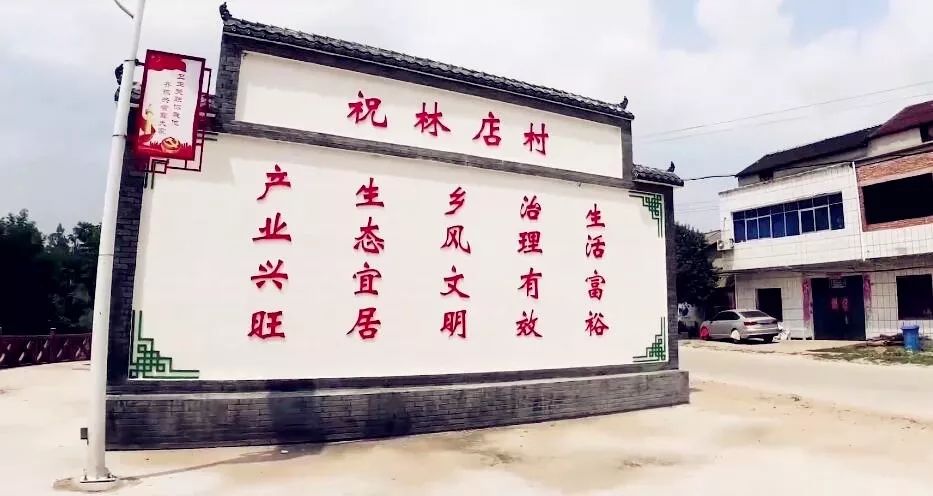 祝林店村
产业兴旺
生态宜居
乡风文明
治理有效
生活富裕